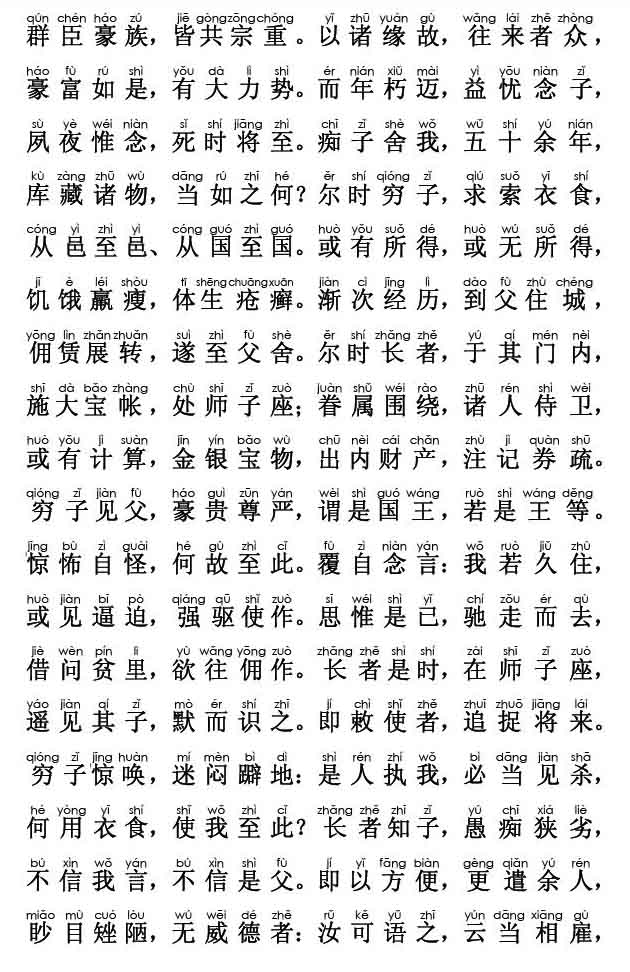 qún chén háo zú jiē gòng zōng chóng yǐ zhū yuán gù wǎng lái zhě zhòng
群臣豪族，皆共宗重。以诸缘故，往来者众，
háo fù rú shì yǒu dà lì shì ér nián xiǔ mài yì yōu niàn zǐ
豪富如是，有大力势。而年朽迈，益忧念子，
sù yè wéi niàn sǐ shí jiāng zhì chī zǐ shě wǒ wǔ shí yú nián
夙夜惟念，死时将至。痴子舍我，五十余年，
kù zàng zhū wù dāng rú zhī hé ěr shí qióng zǐ qiú suǒ yī shí
库藏诸物，当如之何？尔时穷子，求索衣食，
cóng yì zhì yì cóng guó zhì guó huò yǒu suǒ dé huò wú suǒ dé
从邑至邑、从国至国。或有所得，或无所得，
jī è léi shòu tǐ shēng chuāng xuǎn jiàn cì jīng lì dào fù zhù chéng
饥饿羸瘦，体生疮癣。渐次经历，到父住城，
yōng lìn zhǎn zhuǎn suì zhì fù shè ěr shí zhǎng zhě yú qí mén nèi
佣赁展转，遂至父舍。尔时长者，于其门内，
shī dà bǎo zhàng chù shī zǐ zuò juàn shǔ wéi rào zhū rén shì wèi
施大宝帐，处师子座；眷属围绕，诸人侍卫，
huò yǒu jì suàn jīn yín bǎo wù chū nèi cái chǎn zhù jì quàn shū
或有计算，金银宝物，出内财产，注记券疏。
qióng zǐ jiàn fù háo guì zūn yán wèi shì guó wáng ruò shì wáng děng
穷子见父，豪贵尊严，谓是国王，若是王等。
jīng bù zì guài hé gù zhì cǐ fù zì niàn yán wǒ ruò jiǔ zhù
惊怖自怪，何故至此。覆自念言：我若久住，
huò jiàn bī pò qiáng qū shǐ zuò sī wéi shì yǐ chí zǒu ér qù
或见逼迫，强驱使作。思惟是已，驰走而去，
jiè wèn pín lǐ yù wǎng yōng zuò zhǎng zhě shì shí zài shī zǐ zuò
借问贫里，欲往佣作。长者是时，在师子座，
yáo jiàn qí zǐ mò ér shí zhī jí chì shǐ zhě zhuī zhuō jiāng lái
遥见其子，默而识之。即敕使者，追捉将来。
qióng zǐ jīng huàn mí mèn bì dì shì rén zhí wǒ bì dāng jiàn shā
穷子惊唤，迷闷躃地：是人执我，必当见杀，
hé yòng yī shí shǐ wǒ zhì cǐ zhǎng zhě zhī zǐ yú chī xiá liè
何用衣食，使我至此？长者知子，愚痴狭劣，
bú xìn wǒ yán bú xìn shì fù jí yǐ fāng biàn gèng qiǎn yú rén
不信我言，不信是父。即以方便，更遣余人，
miǎo mù cuó lòu wú wēi dé zhě rǔ kě yǔ zhī yún dāng xiāng gù
眇目矬陋，无威德者：汝可语之，云当相雇，